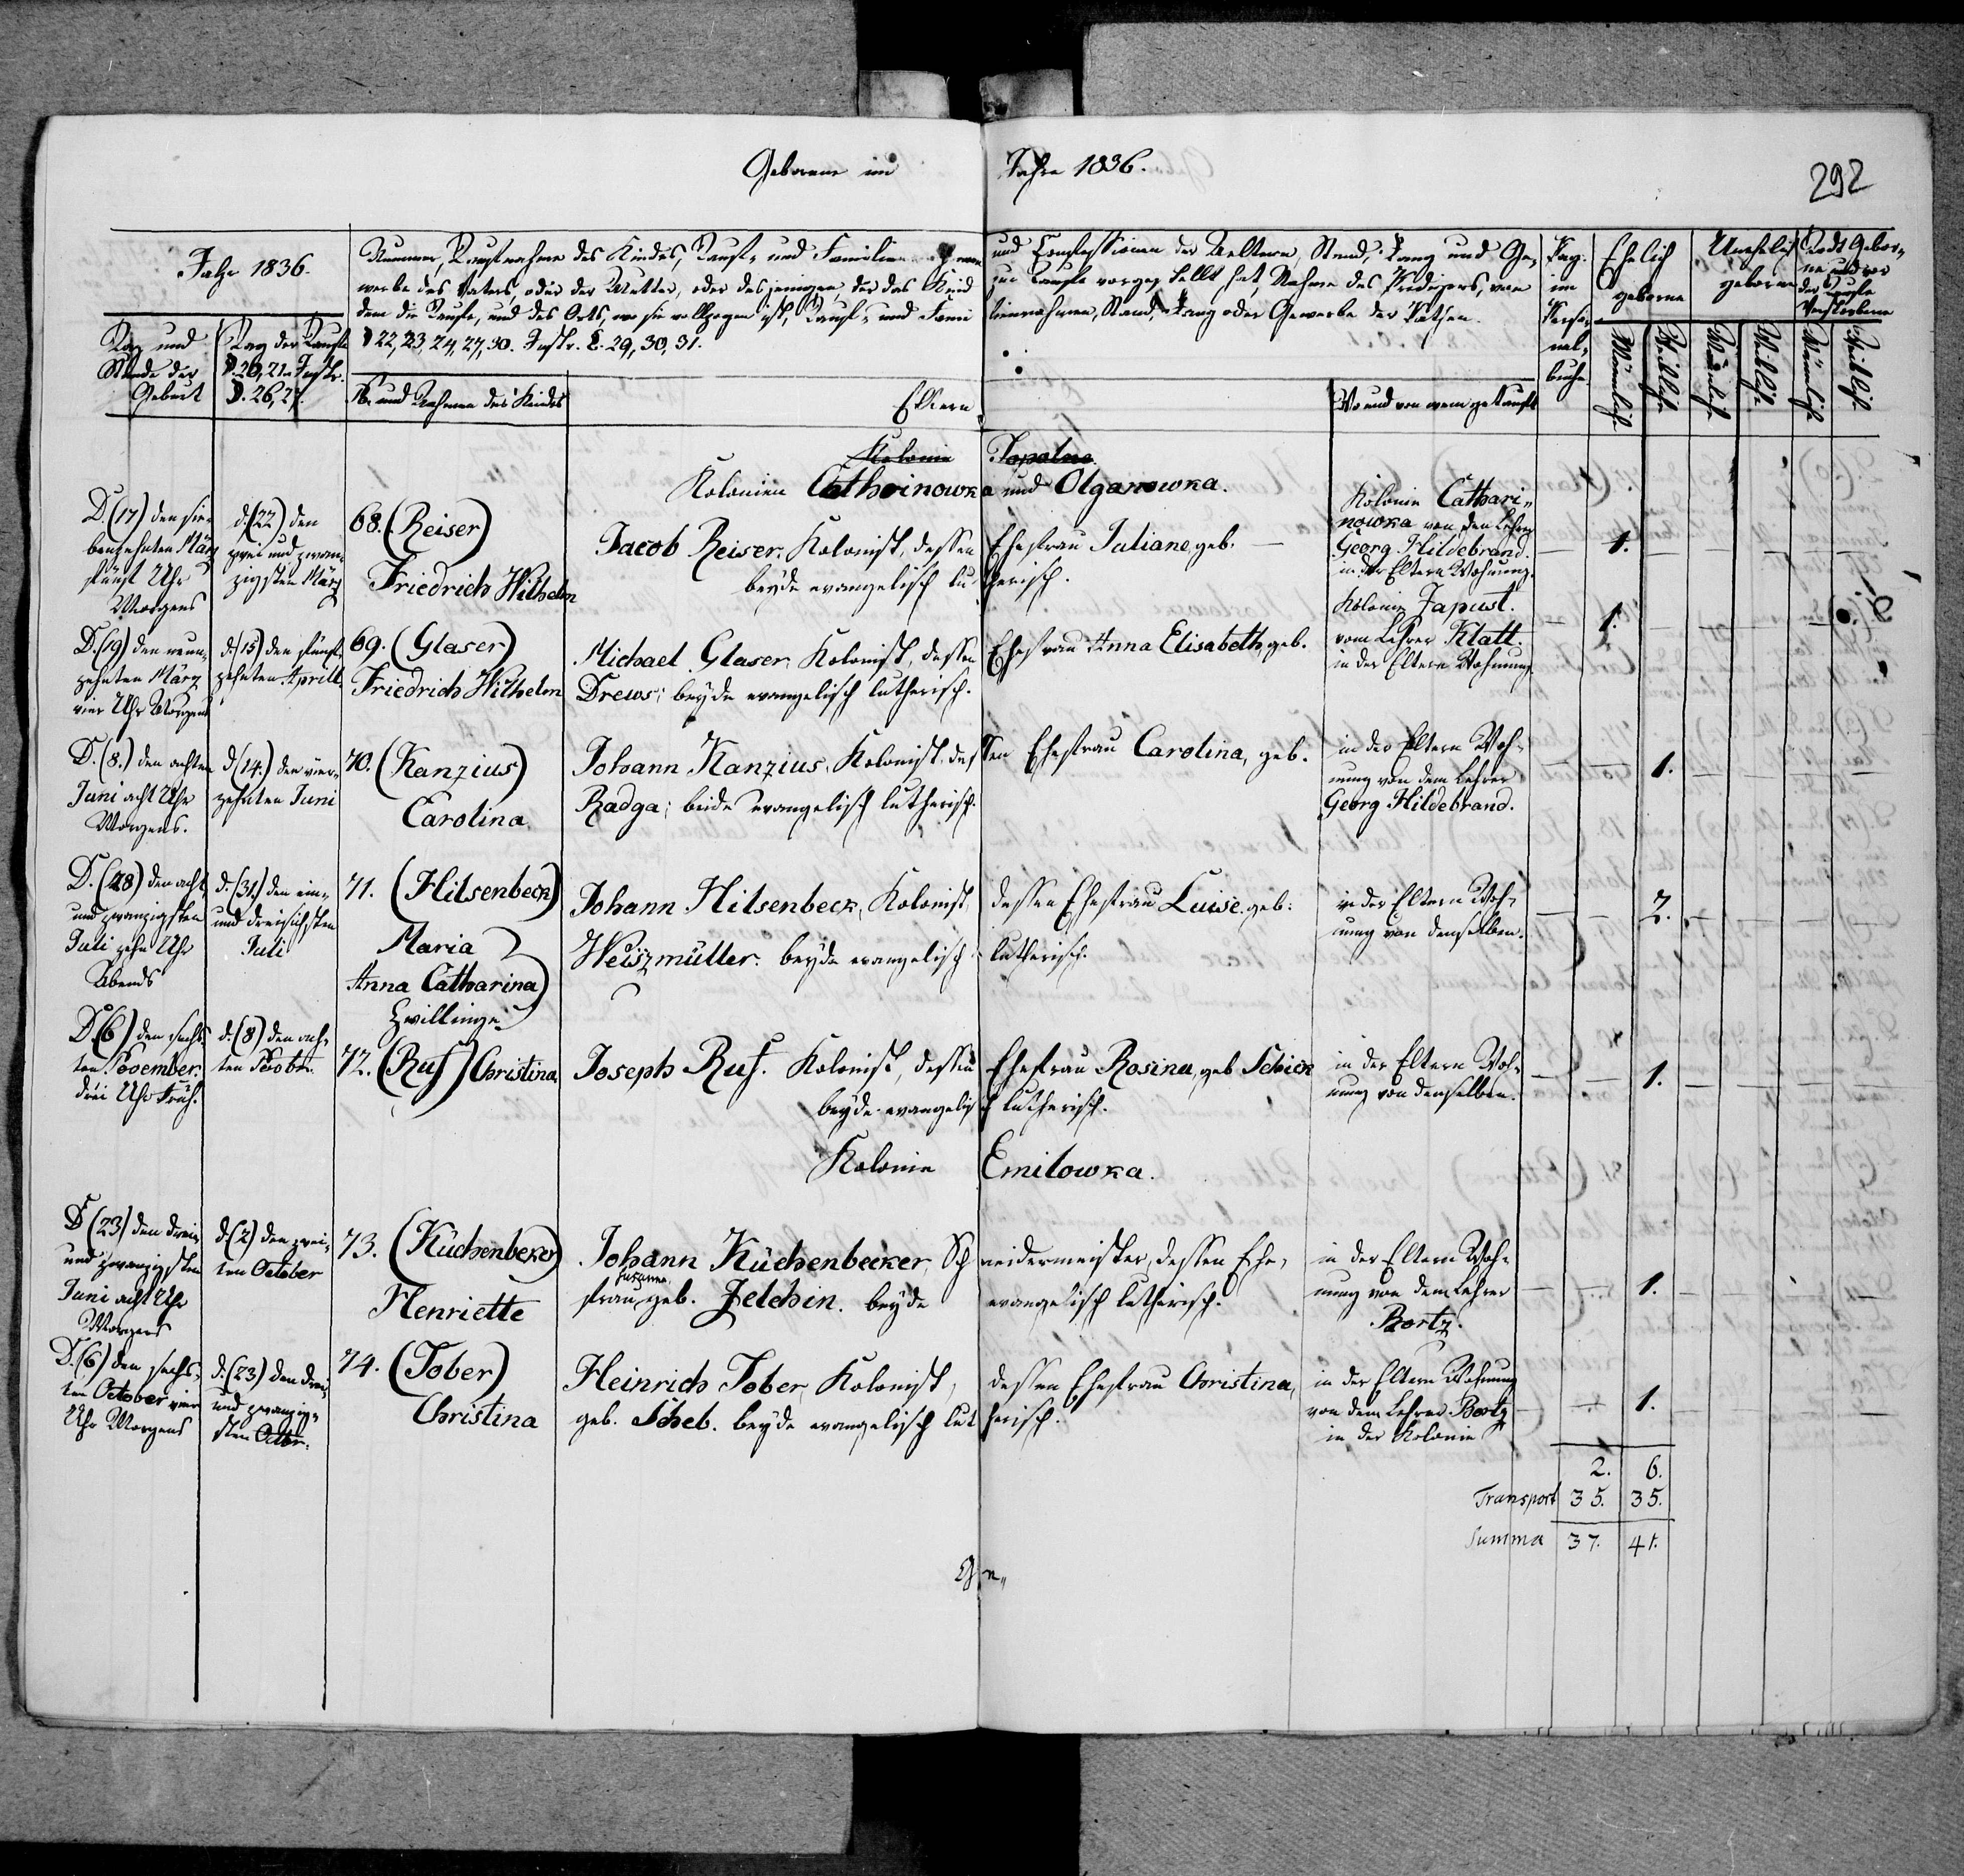 Geborene im Jahre 1836.
292
Jahr 1836.
Tag und
Stunde der
Geburt
Tag der Taufe
§. 20, 21. Instr.
§. 26, 27.
Nummer, Taufnahme des Kindes, Tauf- und Familien und Confessionen der Aeltern, Stand, Rang und Ge-
werbe des Vaters, oder der Mutter, oder desjenigen, der das Kind zur Taufe vorgestellt hat, Nahme des Predigers, von
dem die Taufe, und des Orts, wo sie vollzogen ist, Tauf- und Fami liennahmen, Stand, Rang oder Gewerbe der Pathen.
§ 22, 23, 24, 27, 30. Instr. §. 29, 30, 31.
No. und Nahmen des Kindes
Eltern
Wo und von wem getauft
Pag.
im
Perso-
nal-
buche
Ehelich
geborne
Unehelich
geborne
Todt Gebor-
ne und vor
der Taufe
Verstorbene
Männlich
Weiblich
Männlich
Weiblich
Männlich
Weiblich
Kolonie Topalno
Kolonien Catharinowka und Olganowka.
D. (17) den sie-
benzehnten März
fünf Uhr
Morgens
d. (22) den
zwei und zwan-
zigsten März
68. (Reiser)
Friedrich Wilhelm
Jacob Reiser, Kolonist, dessen Ehefrau Juliane, geb. —
beyde evangelisch lutherisch.
Kolonie Cathari-
nowka von den Lehrer
Georg Hildebrand.
in der Eltern Wohnung.
1.
D. (19) den neun-
zehnten März
vier Uhr Morgens
d. (15) den fünf-
zehnten Aprill.
69. (Glaser)
Friedrich Wilhelm
Michael Glaser, Kolonist, dessen Ehefrau Anna Elisabeth, geb.
Drews; beyde evangelisch lutherisch.
Kolonie Japust.
vom Lehrer Klatt.
in der Eltern Wohnung
1.
D. (8.) den achten
Juni acht Uhr
Morgens.
d. (14.) den vier-
zehnten Juni
70. (Kanzius)
Carolina
Johann Kanzius, Kolonist, dessen Ehefrau Carolina, geb.
Radga; beide evangelisch lutherisch.
in der Eltern Woh-
nung von dem Lehrer
Georg Hildebrand.
1.
D. (28) den acht
und zwanzigsten
Juli zehn Uhr
Abends
d. (31) den ein-
und dreisichsten
Juli
71. (Hilsenbeck)
Maria
Anna Catharina
Zwillinge
Johann Hilsenbeck, Kolonist, dessen Ehefrau Luise, geb:
Weiszmüller. beyde evangelisch lutherisch.
in der Eltern Woh-
nung von demselben.
2.
D. (6) den sechs-
ten November
drei Uhr Früh.
d. (8) den ach-
ten Novbr.
72. (Ruf) Christina
Joseph Ruf. Kolonist, dessen Ehefrau Rosina, geb Schick
beyde evangelisch lutherisch.
in der Eltern Woh-
nung von demselben.
1.
Kolonie Emilowka.
D (23) den drei
und zwanzigsten
Juni acht Uhr
Morgens
d. (2) den zwei-
ten October
73. (Küchenbeker)
Henriette
Johann Küchenbecker, Schneidermeister, dessen Ehe-
Susanna
frau, geb. Jelchin. beyde evangelisch lutherisch.
in der Eltern Woh-
nung von dem Lehrer
Bortz.
1.
D. (6) den sechs-
ten October vier
Uhr Morgens
d. (23) den drei
und zwanzig-
sten Octbr.
74. (Tober)
Christina
Heinrich Tober, Kolonist, dessen Ehefrau Christina,
geb. Scheb. beyde evangelisch lutherisch.
in der Eltern Wohnung
von dem Lehrer Bortz
in der Kolonie
1.
2. 6.
Transport 35. 35.
Summa 37. 41.
Ge-